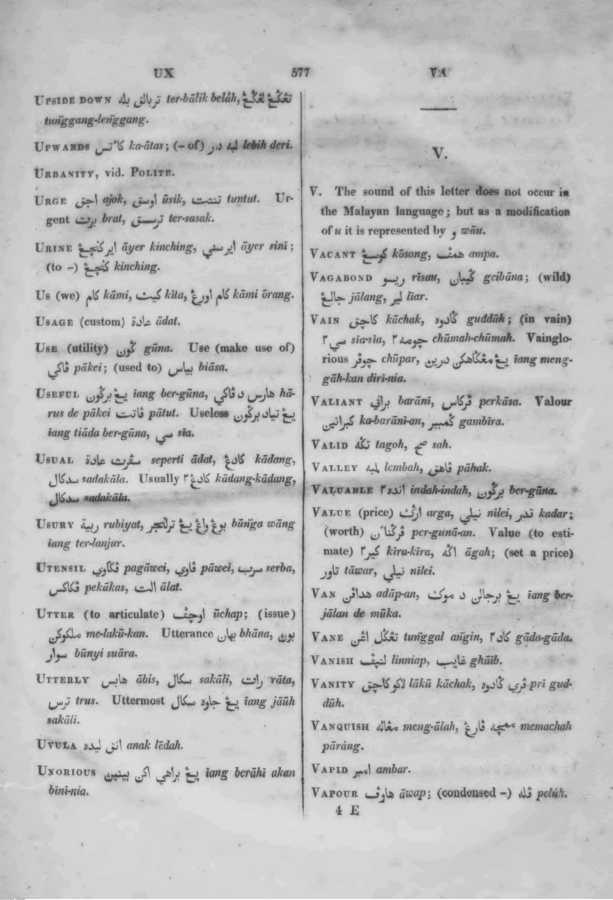 UX 577 VA
UPSIDE DOWN تربالق بله ter-bālik belah,
tunggang-lenggang.
UPWARDS ka-ātas; (– of) لبه در lebih deri.
URBANITY, vid. POLITE.
URGE اجق ajok, اوسق ūsik, تنتت tuntut. Ur-
gent برت brat, ترسسق ter-sasak.
URINE اير كنچڠ āyer kinching, اير سني āyer sini;
(to –) كنچڠ kinching.
US (we) كام kāmi, كيت kīta, كام اورڠ kāmi ōrang.
USAGE (custom) عادة ādat.
USE (utility) ڬون gūna. Use (make use of)
ڤاكي pākei; (used to) بياس biāsa.
USEFUL يڠ برڬون iang ber-gūna, هارس دڤاكي hā-
rus de pākei ڤاتت pātut. Useless يڠ تياد برڬون
iang tiāda ber-gūna, سي sīa.
USUAL سڤرت عادة seperti ādat, كادڠ kādang,
سدكال sadakāla. Usually كادڠ٢ kādang-kādang,
سدكال sadakāla.
USURY ربية rubiyat, بوڠ واڠ يڠ ترلنجر būnga wāng
iang ter-lanjur.
UTENSIL ڤڬاوي pagāwei, ڤاوي pāwei, سرب serba,
ڤكاكس pekākas, الت ālat.
UTTER (to articulate) اوچڤ ūchap; (issue)
ملكوكن me-lakū-kan. Utterance بهان bhāna, بوڽي
سوار būnyi suāra.
UTTERLY هابس ābis, سكال sakāli, رات rāta,
ترس trus. Uttermost يڠ جاوه سكال iang jāūh
sakāli.
UVULA انق ليده anak lēdah.
UXORIOUS يڠ براهي اكن بينين iang berāhi akan
bini-nia.
V.
V. The sound of this letter does not occur in
the Malayan language; but as a modification
of u it is represented by و wāu.
VACANT كوسڠ kōsong, همڤ ampa.
VAGABOND ريسو rīsau, ڬيبان geibāna; (wild)
جالڠ jālang, لير līar.
VAIN كاچق kāchak, ڬادوه guddūh; (in vain)
سي٢ sīa-sīa, چومه٢ chūmah-chūmah. Vainglo-
rious چوڤر chūpar, يڠ مڠڬاهكن درين iang meng-
gāh-kan diri-nia.
VALIANT براني barāni, ڤركاس perkāsa. Valour
كبرانين ka-barāni-an, ڬمبير gambīra.
VALID تڬه tagoh, صح sah.
VALLEY لمبه lembah, ڤاهق pāhak.
VALUABLE انده٢ indah-indah, برڬون ber-gūna.
VALUE (price) ارڬ arga, نيلي nilei, قدر kadar;
(worth) per-gunā-an. Value (to esti-
mate) كير٢ kira-kira, اڬه āgah; (set a price)
تاور tāwar, نيلي nilei.
VAN هداڤن adāp-an, يڠ برجالن د موك iang ber-
jālan de mūka.
VANE تڠڬل اڠن tunggal angin, ڬاد٢ gāda-gāda.
VANISH لنيڤ linniap, غايب ghāib.
VANITY لاكو كاچق lākū kāchak, ڤري ڬادوه pri gud-
dūh.
VANQUISH مڠاله meng-ālah, ممچه ڤارڠ memachah
pārang.
VAPID امبر ambar.
VAPOUR هاوڤ āwap; (condensed –) ڤلوه pelūh.
4 E